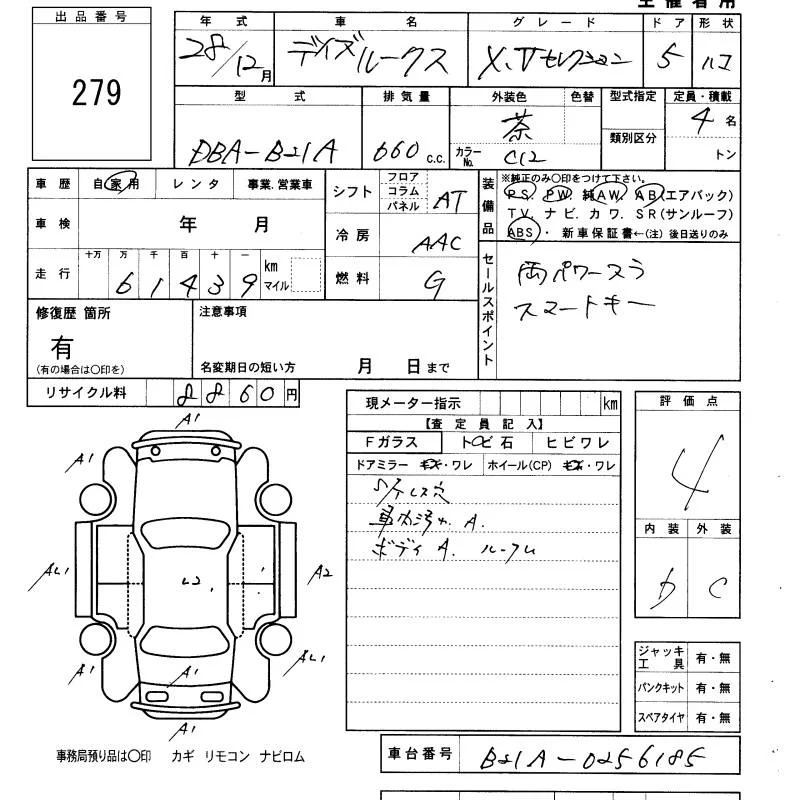 出品番号
279
年式 車名 グレード ドア 形状
28/12月 デイズルークス X.Vセレクション 5 ハコ
型式 排気量 外装色 色替 型式指定 定員・積載
DBA-B21A 660 c.c. 茶 4名
カラーNo. C12 類別区分 トン
車歴 自家用 レンタ 事業.営業車
車検 年 月
走行 十万 万 千 百 十 一
6 1 4 3 9 km マイル
シフト フロア コラム パネル AT
冷房 AAC
燃料 G
装備品
※純正のみ○印をつけて下さい。
PS. PW. 純AW. AB(エアバック)
TV. ナビ. カワ. SR(サンルーフ)
ABS・新車保証書←(注)後日送りのみ
セールスポイント
両パワースラ
スマートキー
修復歴 箇所
有
(有の場合は○印を)
注意事項
名変期日の短い方 月 日まで
リサイクル料 8860円
現メーター指示 km
【査定員記入】
Fガラス トビ石 ヒビワレ
ドアミラー キズ・ワレ ホイール(CP) キズ・ワレ
車内汚れ A.
ボディ A. ルーフム
評価点
4
内装 外装
b C
ジャッキ 工具 有・無
パンクキット 有・無
スペアタイヤ 有・無
A1
A1
A1
AL1
A2
A1
AL1
A1
A1
事務局預り品は○印 カギ リモコン ナビロム
車台番号 B21A-0256185